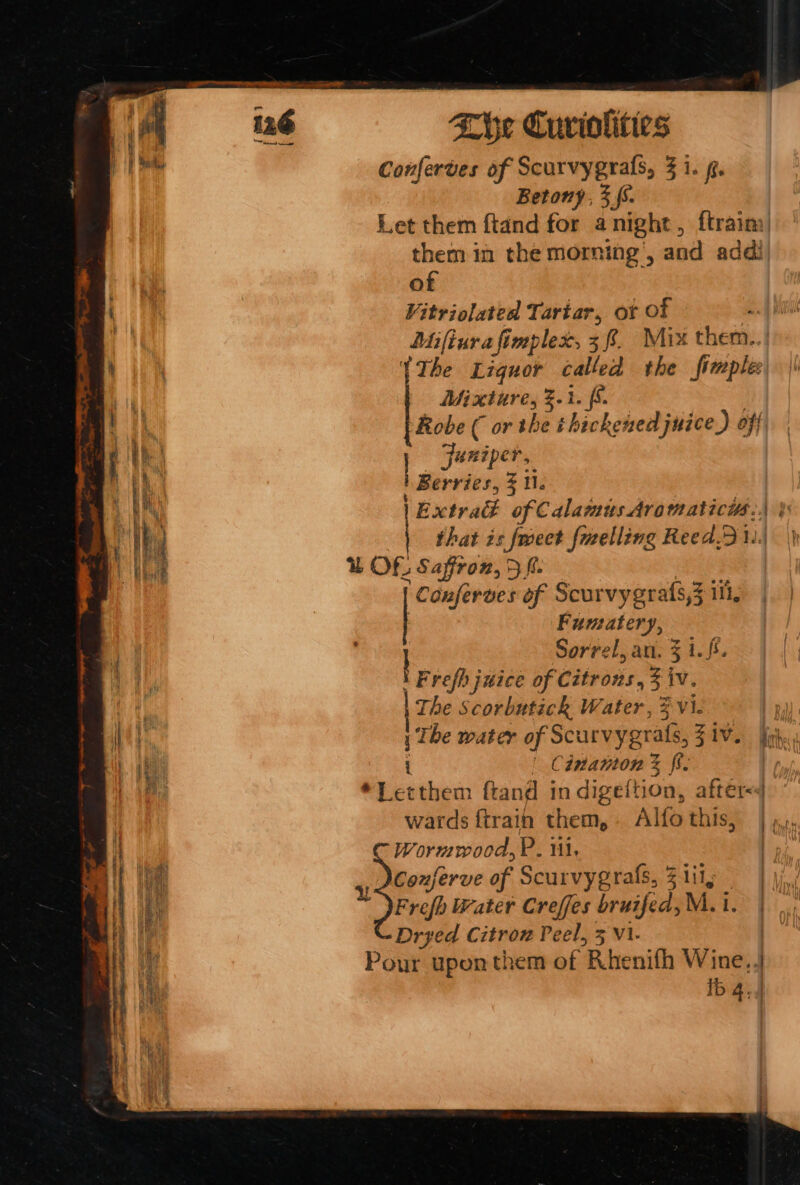 126 The Curiosities
Conſerves of Scurvygraſs, ℥ i. ß.
Betony, ℥ ß.
Let them ſtand for a night, ſtrain
them in the morning, and add
of
Vitriolated Tartar, or of
Miſtura ſimplex, ʒ ß. Mix them.
The Liquor called the ſimple
Mixture, ℥. i. ß.
Robe ( or the thickened juice ) of
Juniper,
Berries, ℥ ii.
Extract of Calamus Aromaticus.
that is ſweet ſmelling Reed. ℈ ii.
℞ Of Saffron, ℈ ß.
Conſerves of Scurvygraſs, ℥ iii.
Fumatery,
Sorrel, an. ℥ i. ß.
Freſh juice of Citrons, ℥ iv.
The Scorbutick Water, ℥ vi.
The water of Scurvygraſs, ℥ iv.
Cinamon ℥ ß.
* Let them ſtand in digeſtion, after-
wards ſtrain them, Alſo this,
Wormwood, P. iii.
Conſerve of Scurvygraſs, ℥ iii,
℞ Freſh Water Creſſes bruiſed, M. i.
Dryed Citron Peel, ʒ vi.
Pour upon them of Rheniſh Wine,
lb 4.